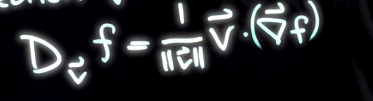 D_v⃗ f = 1/||v⃗|| v⃗ · (∇⃗f)